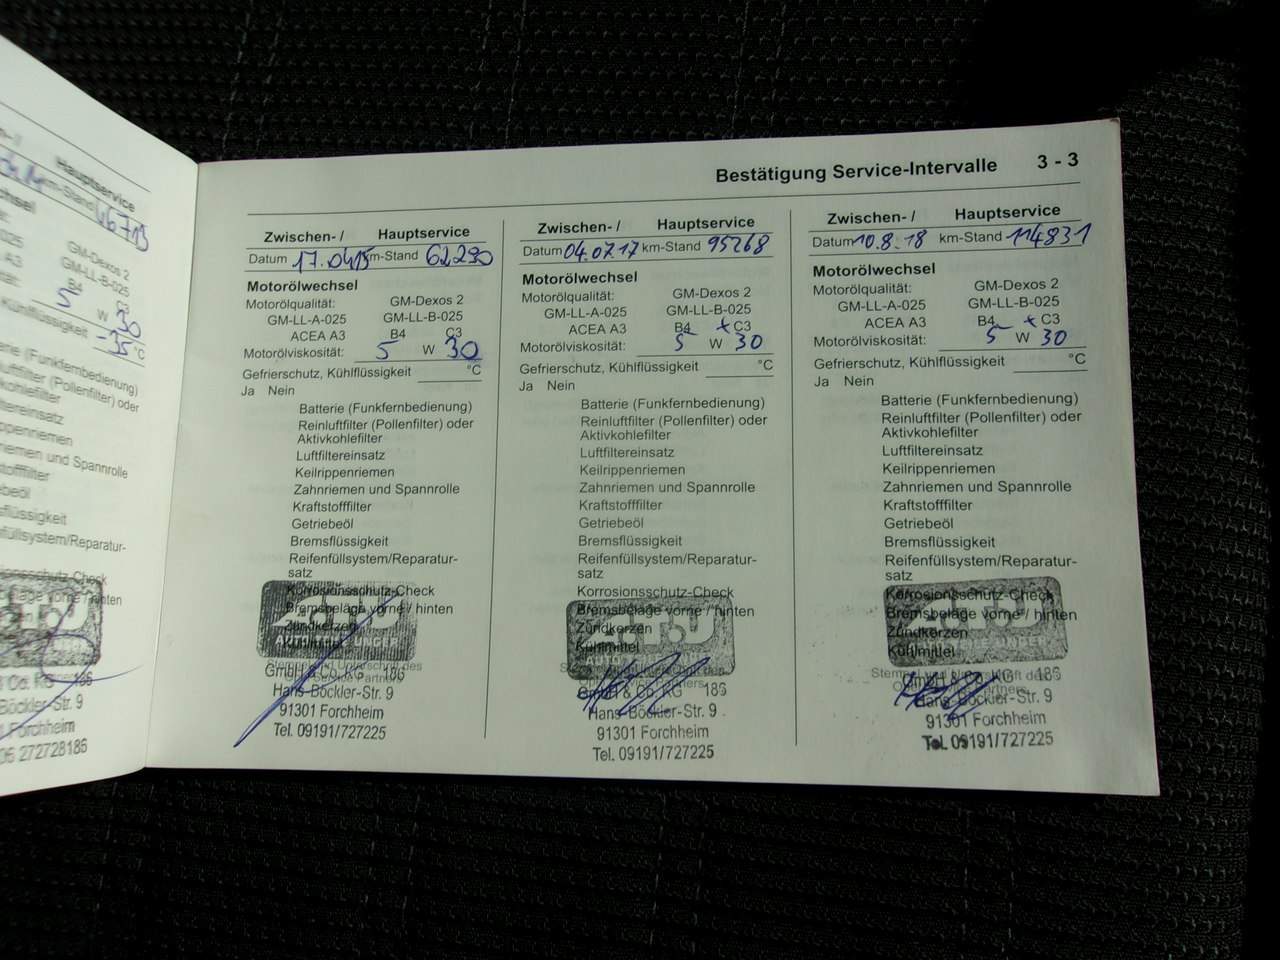 Hauptservice
km-Stand 46713
GM-Dexos 2
GM-LL-B-025
A3 B4 C3
5 W 30
Kühlflüssigkeit -35 °C
(Funkfernbedienung)
(Pollenfilter) oder
und Spannrolle
hinten
Co. KG 186
Böckler-Str. 9
Forchheim
272728186
Bestätigung Service-Intervalle 3 - 3
Zwischen- / Hauptservice
Datum 17.04.15 km-Stand 62290
Motorölwechsel
Motorölqualität: GM-Dexos 2
GM-LL-A-025 GM-LL-B-025
ACEA A3 B4 C3
Motorölviskosität: 5 W 30
Gefrierschutz, Kühlflüssigkeit °C
Ja Nein
Batterie (Funkfernbedienung)
Reinluftfilter (Pollenfilter) oder
Aktivkohlefilter
Luftfiltereinsatz
Keilrippenriemen
Zahnriemen und Spannrolle
Kraftstofffilter
Getriebeöl
Bremsflüssigkeit
Reifenfüllsystem/Reparatur-
satz
Korrosionsschutz-Check
Bremsbeläge vorne / hinten
Zündkerzen
Kühlmittel
Stempel und Unterschrift des
Service Partners
GmbH & Co. KG 186
Hans-Böckler-Str. 9
91301 Forchheim
Tel. 09191/727225
Zwischen- / Hauptservice
Datum 04.07.17 km-Stand 95268
Motorölwechsel
Motorölqualität: GM-Dexos 2
GM-LL-A-025 GM-LL-B-025
ACEA A3 B4 x C3
Motorölviskosität: 5 W 30
Gefrierschutz, Kühlflüssigkeit °C
Ja Nein
Batterie (Funkfernbedienung)
Reinluftfilter (Pollenfilter) oder
Aktivkohlefilter
Luftfiltereinsatz
Keilrippenriemen
Zahnriemen und Spannrolle
Kraftstofffilter
Getriebeöl
Bremsflüssigkeit
Reifenfüllsystem/Reparatur-
satz
Korrosionsschutz-Check
Bremsbeläge vorne / hinten
Zündkerzen
Kühlmittel
GmbH & Co. KG 186
Hans-Böckler-Str. 9
91301 Forchheim
Tel. 09191/727225
Zwischen- / Hauptservice
Datum 10.8.18 km-Stand 114831
Motorölwechsel
Motorölqualität: GM-Dexos 2
GM-LL-A-025 GM-LL-B-025
ACEA A3 B4 x C3
Motorölviskosität: 5 W 30
Gefrierschutz, Kühlflüssigkeit °C
Ja Nein
Batterie (Funkfernbedienung)
Reinluftfilter (Pollenfilter) oder
Aktivkohlefilter
Luftfiltereinsatz
Keilrippenriemen
Zahnriemen und Spannrolle
Kraftstofffilter
Getriebeöl
Bremsflüssigkeit
Reifenfüllsystem/Reparatur-
satz
Korrosionsschutz-Check
Bremsbeläge vorne / hinten
Zündkerzen
Kühlmittel
Stempel und Unterschrift des
Partners
GmbH & Co. KG 186
Hans-Böckler-Str. 9
91301 Forchheim
Tel. 09191/727225